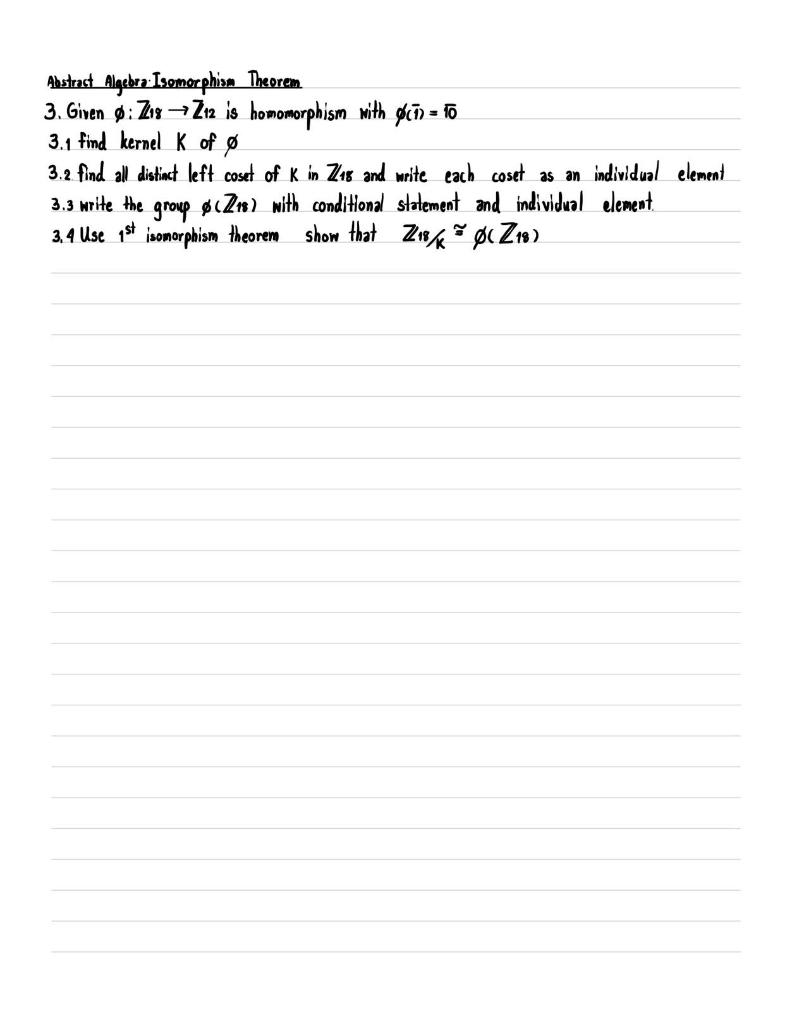 Abstract Algebra: Isomorphism Theorem
3. Given ø: ℤ₁₈ → ℤ₁₂ is homomorphism with ø(1̄) = 1̄0̄
3.1 find kernel K of ø
3.2 find all distinct left coset of K in ℤ₁₈ and write each coset as an individual element
3.3 write the group ø(ℤ₁₈) with conditional statement and individual element.
3.4 Use 1ˢᵗ isomorphism theorem show that ℤ₁₈/K ≅ ø(ℤ₁₈)